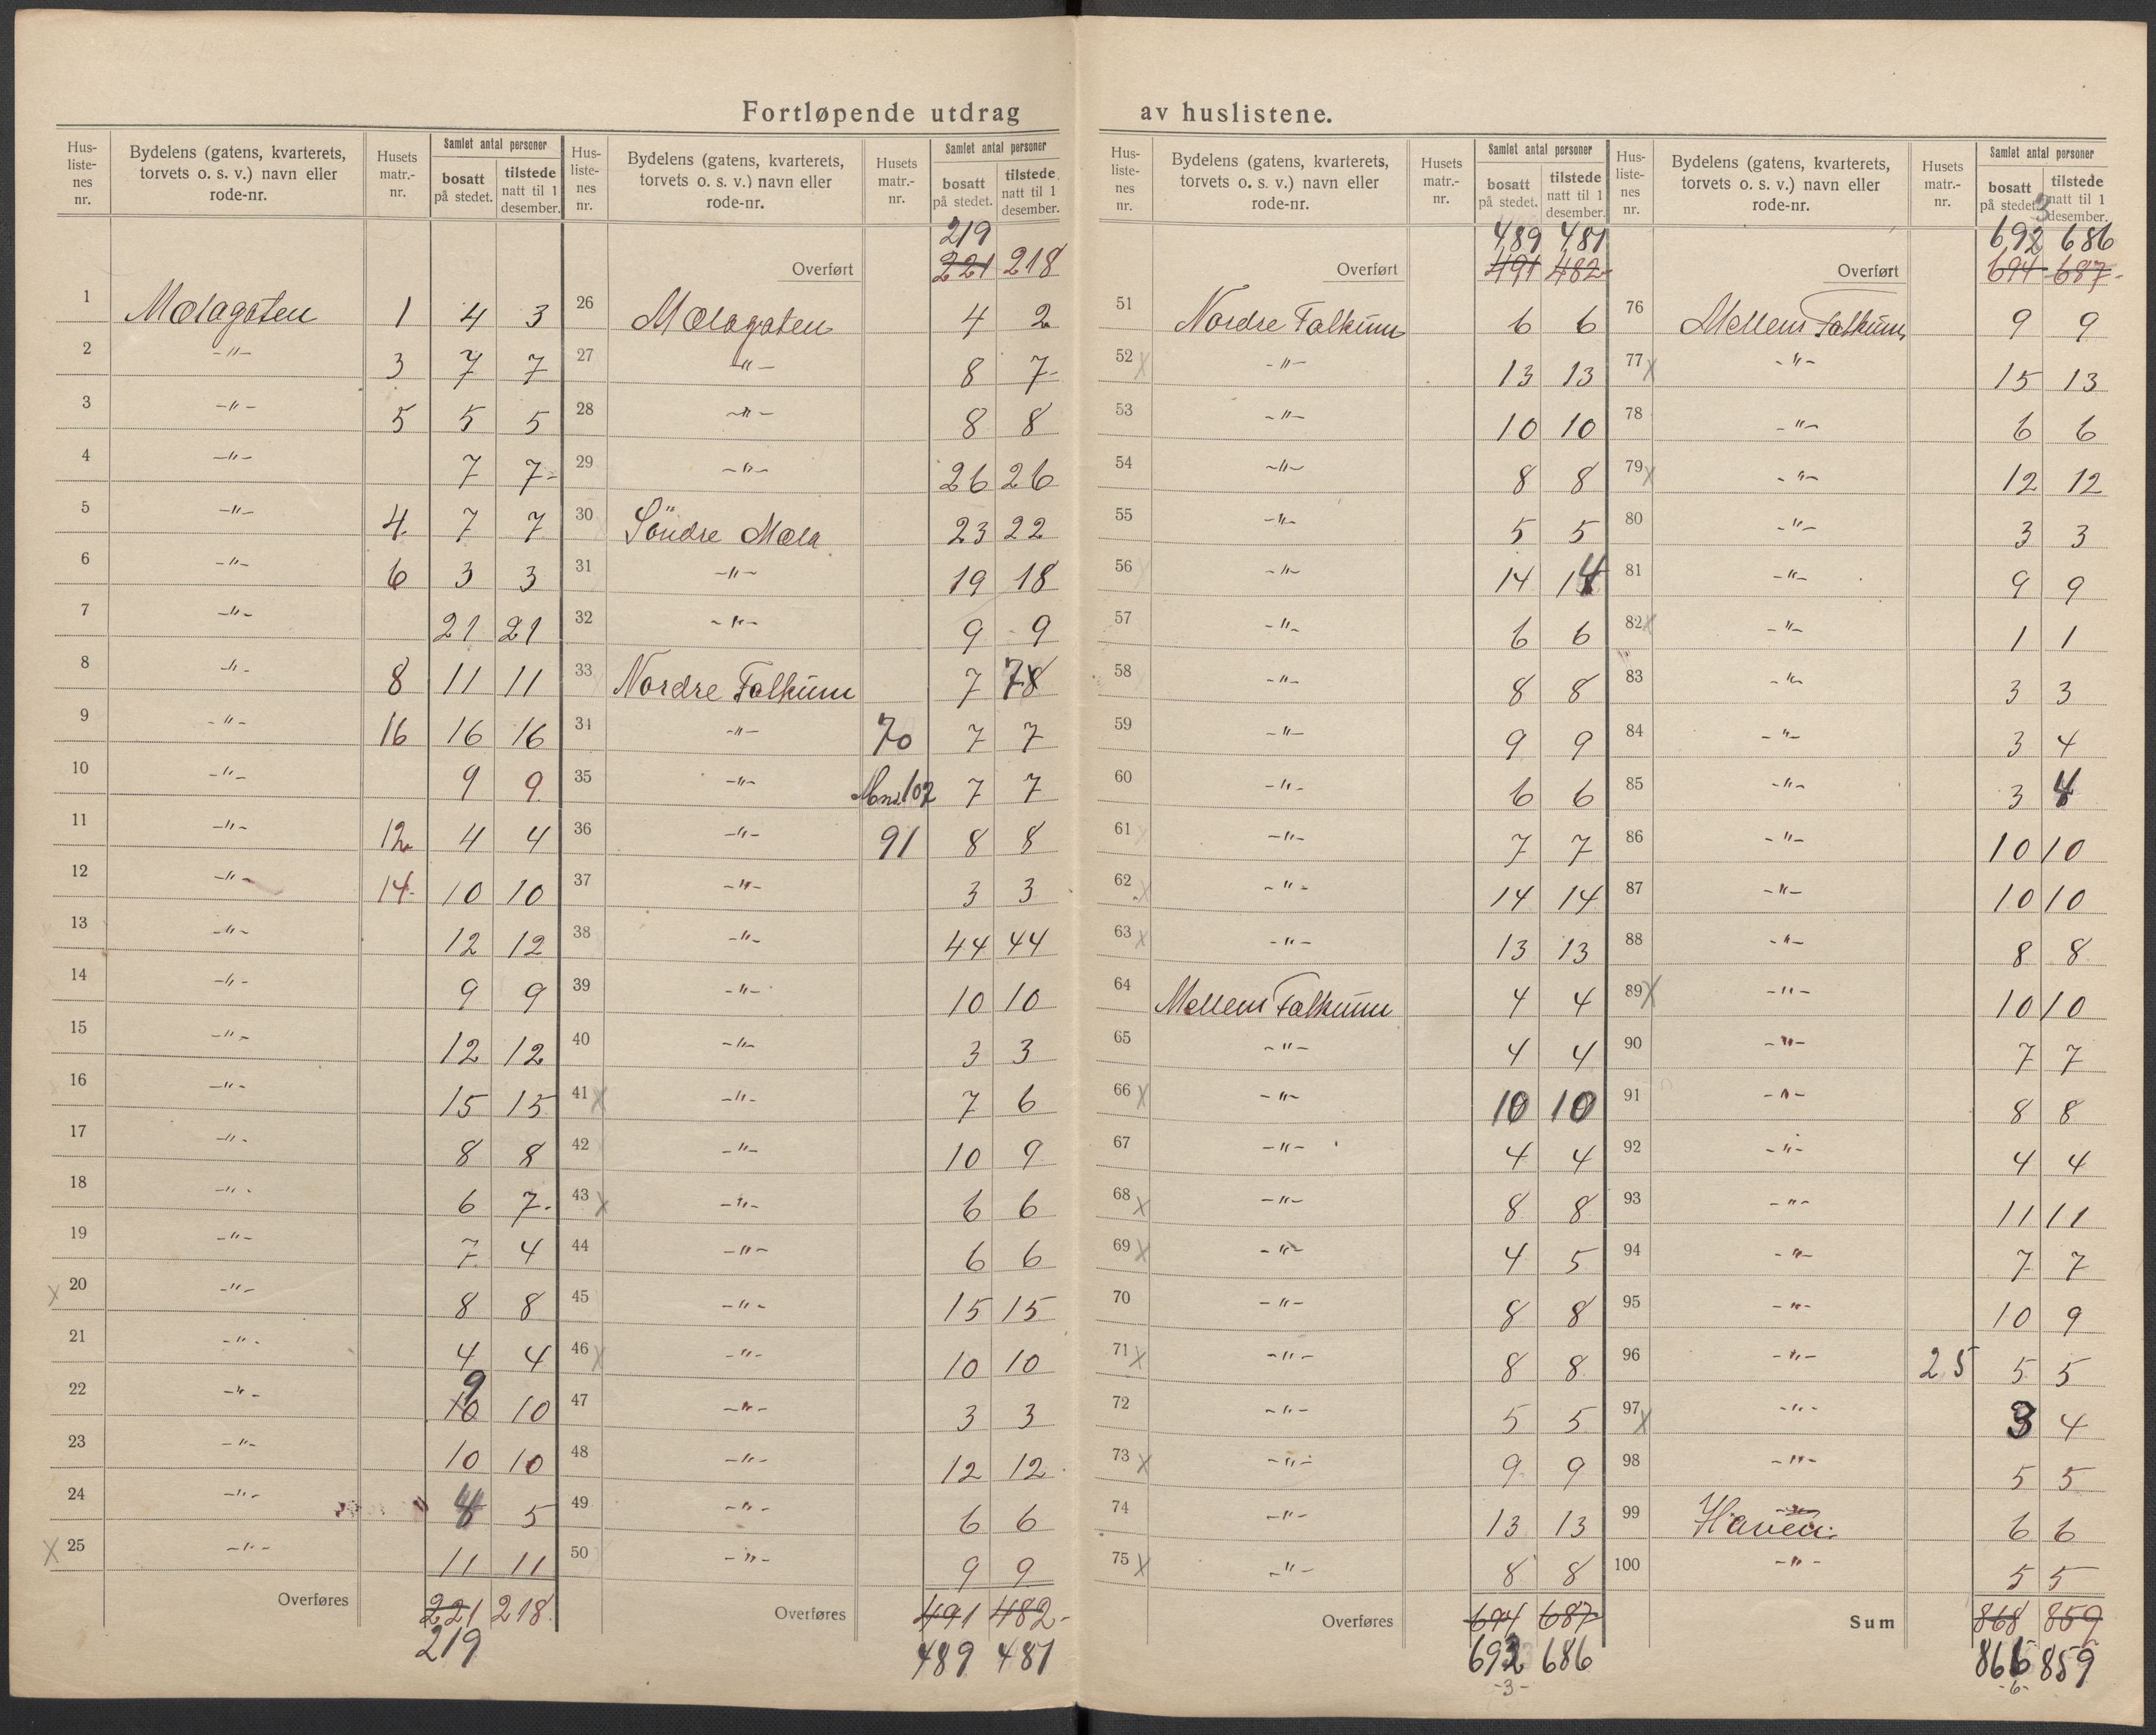 Fortløpende utdrag av huslistene.
Hus-liste-nes nr. | Bydelens (gatens, kvarterets, torvets o. s. v.) navn eller rode-nr. | Husets matr.-nr. | Samlet antal personer bosatt på stedet. | tilstede natt til 1 desember.
1 Mælagaten 1 4 3
2 -"- 3 7 7
3 -"- 5 5 5
4 -"- 7 7
5 -"- 4 7 7
6 -"- 6 3 3
7 -"- 21 21
8 -"- 8 11 11
9 -"- 16 16 16
10 -"- 9 9
11 -"- 12 4 4
12 -"- 14 10 10
13 -"- 12 12
14 -"- 9 9
15 -"- 12 12
16 -"- 15 15
17 -"- 8 8
18 -"- 6 7
19 -"- 7 4
x 20 -"- 8 8
21 -"- 4 4
22 -"- 9 10 10
23 -"- 10 10
24 -"- 4 5
x 25 -"- 11 11
Overføres 221 218
219
Hus-liste-nes nr. | Bydelens (gatens, kvarterets, torvets o. s. v.) navn eller rode-nr. | Husets matr.-nr. | Samlet antal personer bosatt på stedet. | tilstede natt til 1 desember.
219
Overført 221 218
26 Mælagaten 4 2
27 -"- 8 7
28 -"- 8 8
29 -"- 26 26
30 Söndre Mæla 23 22
31 -"- 19 18
32 -"- 9 9
33 Nordre Falkum 7 7 8
34 -"- 70 7 7
35 -"- 102 7 7
36 -"- 91 8 8
37 -"- 3 3
38 -"- 44 44
39 -"- 10 10
40 -"- 3 3
41 x -"- 7 6
42 -"- 10 9
43 x -"- 6 6
44 -"- 6 6
45 -"- 15 15
46 x -"- 10 10
47 -"- 3 3
48 -"- 12 12
49 -"- 6 6
50 -"- 9 9
Overføres 491 482
489 481
Hus-liste-nes nr. | Bydelens (gatens, kvarterets, torvets o. s. v.) navn eller rode-nr. | Husets matr.-nr. | Samlet antal personer bosatt på stedet. | tilstede natt til 1 desember.
489 481
Overført 491 482
51 Nordre Falkum 6 6
52 x -"- 13 13
53 -"- 10 10
54 -"- 8 8
55 -"- 5 5
56 -"- 14 14
57 -"- 6 6
58 -"- 8 8
59 -"- 9 9
60 -"- 6 6
61 -"- 7 7
62 x -"- 14 14
63 x -"- 13 13
64 Mellem Falkum 4 4
65 -"- 4 4
66 x -"- 10 10
67 -"- 4 4
68 x -"- 8 8
69 x -"- 4 5
70 -"- 8 8
71 x -"- 8 8
72 -"- 5 5
73 x -"- 9 9
74 -"- 13 13
75 x -"- 8 8
Overføres 694 687
692 686
-3-
Hus-liste-nes nr. | Bydelens (gatens, kvarterets, torvets o. s. v.) navn eller rode-nr. | Husets matr.-nr. | Samlet antal personer bosatt på stedet. | tilstede natt til 1 desember.
3
692 686
Overført 694 687
76 Mellem Falkum 9 9
77 x -"- 15 13
78 -"- 6 6
79 x -"- 12 12
80 -"- 3 3
81 -"- 9 9
82 x -"- 1 1
83 -"- 3 3
84 -"- 3 4
85 -"- 3 4
86 -"- 10 10
87 -"- 10 10
88 -"- 8 8
89 x -"- 10 10
90 -"- 7 7
91 -"- 8 8
92 -"- 4 4
93 -"- 11 11
94 -"- 7 7
95 -"- 10 9
96 -"- 25 5 5
97 x -"- 3 4
98 -"- 5 5
99 Haven 6 6
100 -"- 5 5
Sum 868 859
866 859
-6-